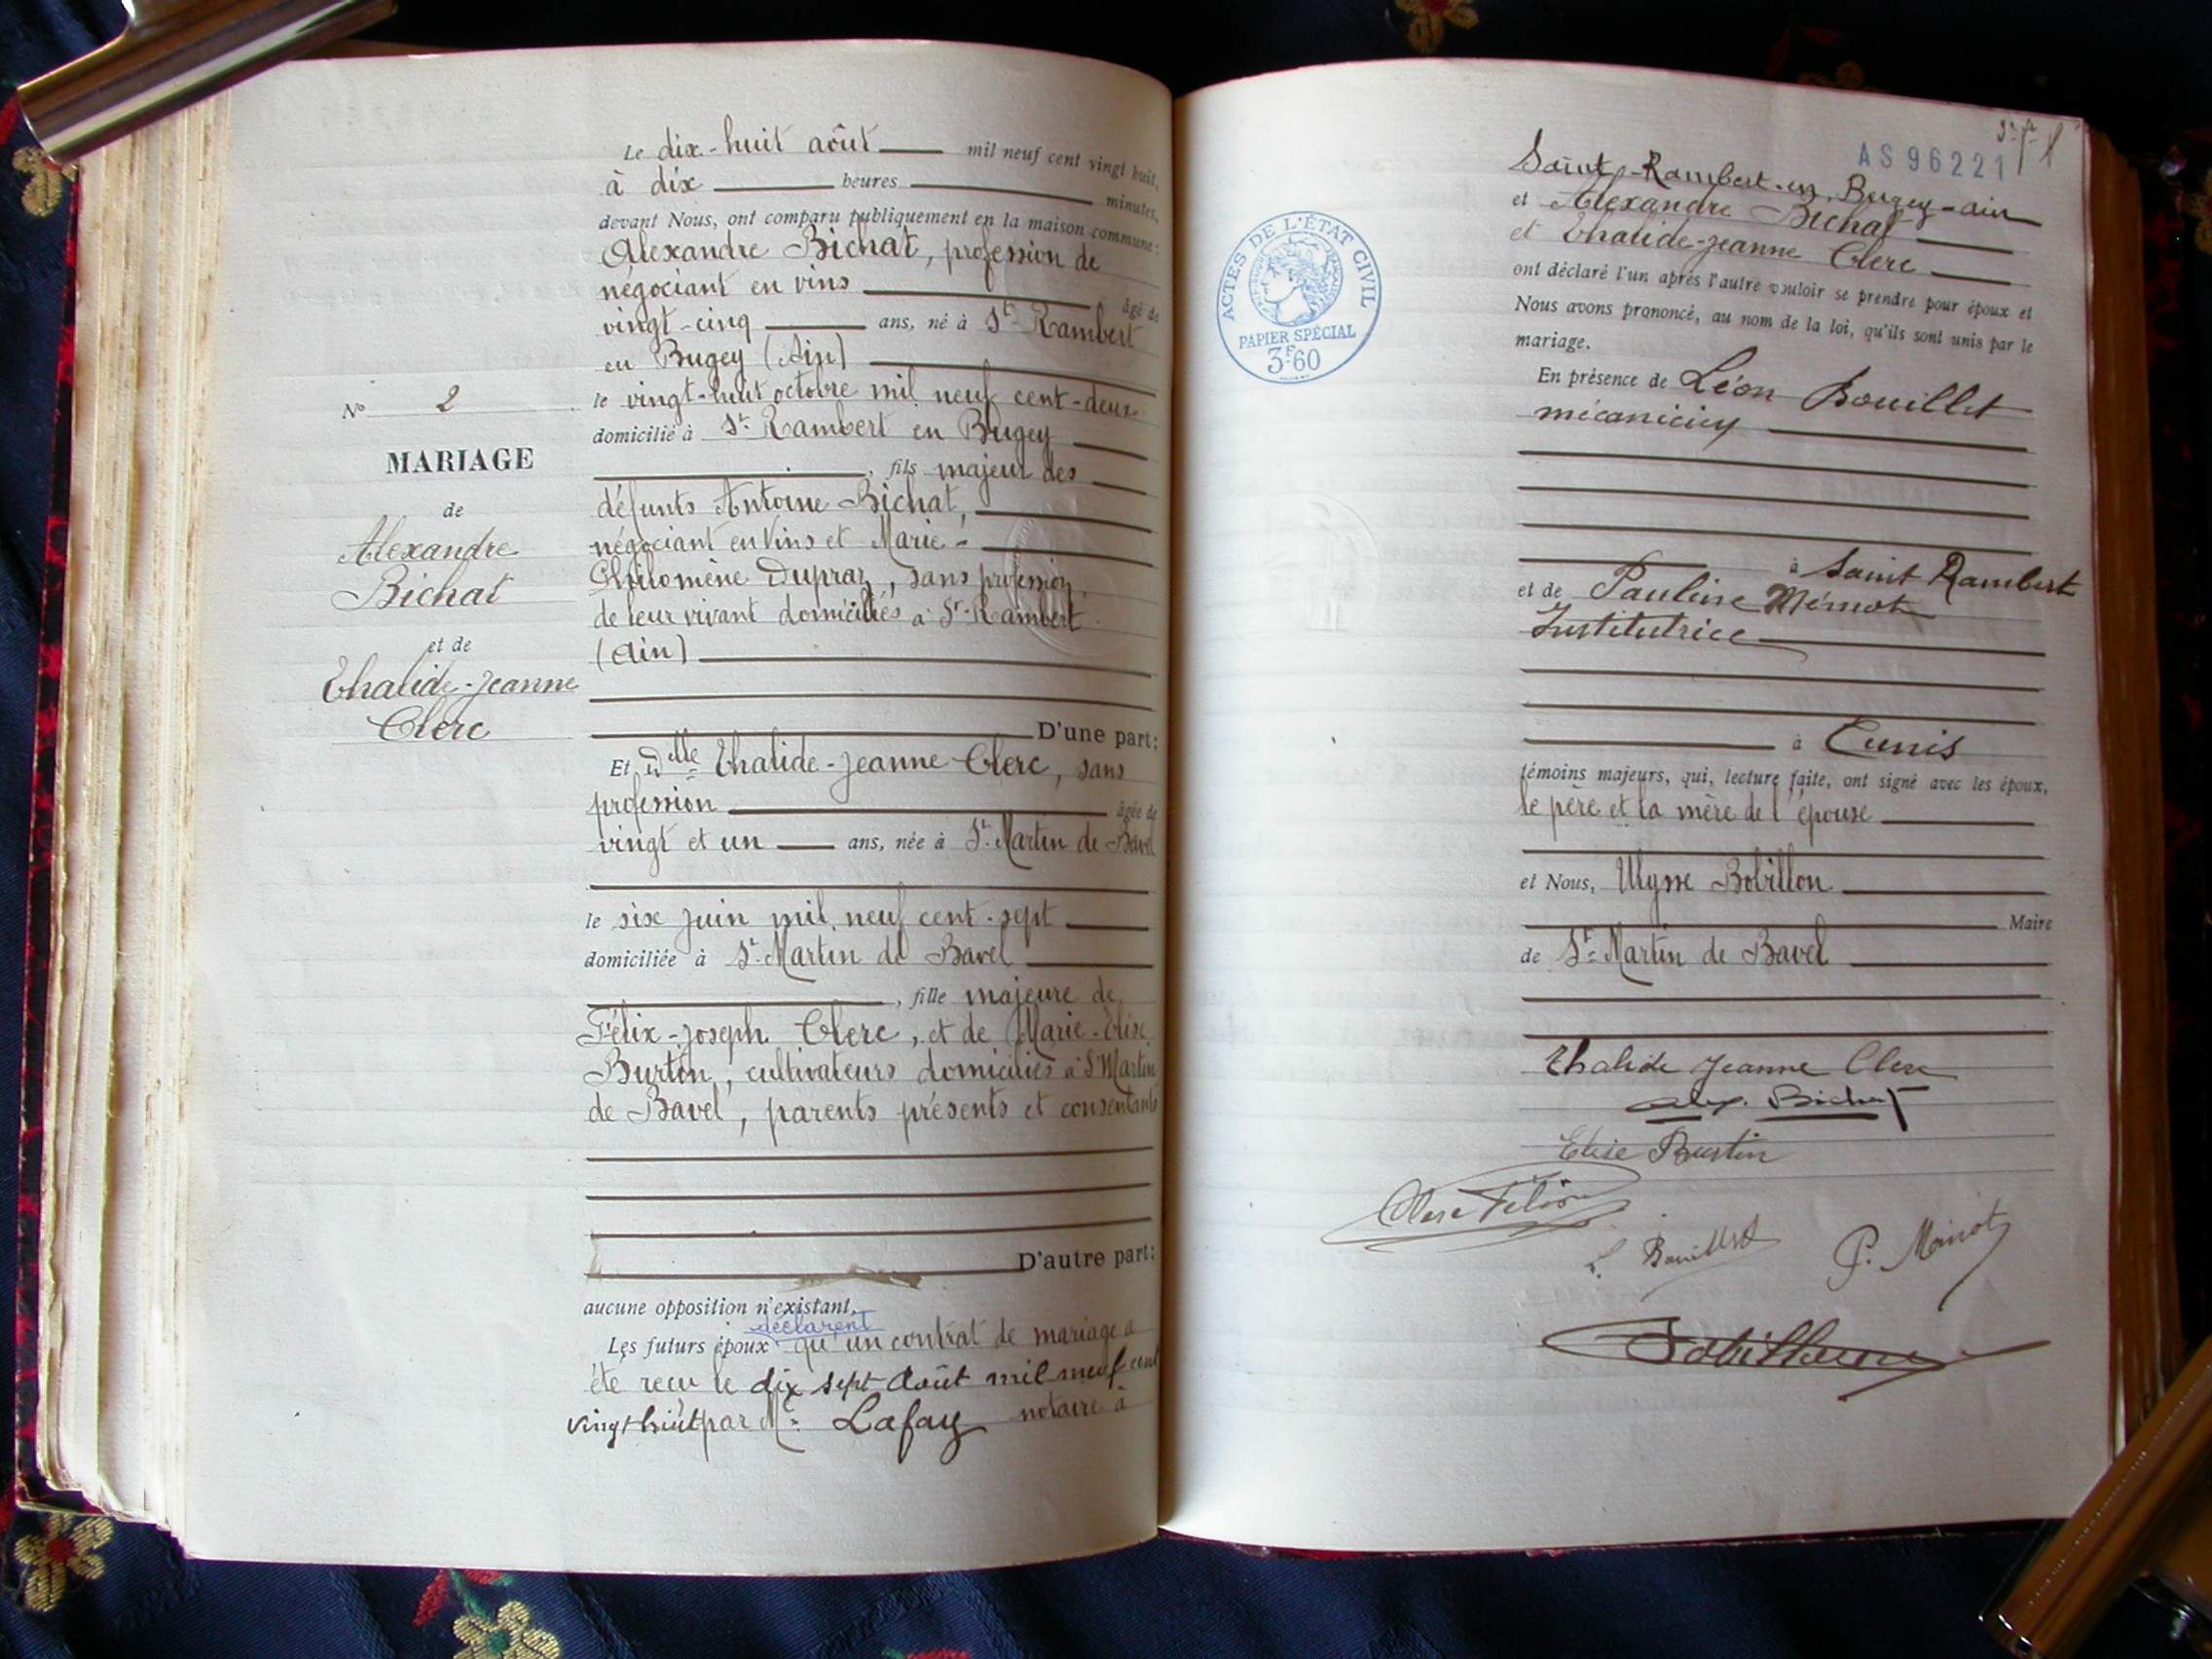 Le dix-huit août mil neuf cent vingt huit,
à dix heures minutes,
devant Nous, ont comparu publiquement en la maison commune :
Alexandre Bichat, profession de
négociant en vins âgé de
vingt-cinq ans, né à St Rambert
en Bugey (Ain)
le vingt-huit octobre mil neuf cent-deux
domicilié à St Rambert en Bugey
, fils majeur des
défunts Antoine Bichat,
négociant en vins et Marie-
Philomène Dupraz, sans profession,
de leur vivant domiciliés à St-Rambert
(Ain)
D'une part;
No 2
MARIAGE
de
Alexandre
Bichat
et de
Thalide-Jeanne
Clerc
Et Delle Thalide-Jeanne Clerc, sans
profession âgée de
vingt et un ans, née à St. Martin de Bavel
le six juin mil neuf cent-sept
domiciliée à St. Martin de Bavel
, fille majeure de
Félix-Joseph Clerc, et de Marie-Elise
Burtin, cultivateurs domiciliés à St Martin
de Bavel, parents présents et consentants
D'autre part;
aucune opposition n'existant.
déclarent
Les futurs époux qu'un contrat de mariage a
été reçu le dix sept Août mil neuf cent
vingt huit par Me Lafay notaire à
AS 96221
Saint-Rambert-en-Bugey-Ain
et Alexandre Bichat
et Thalide-Jeanne Clerc
ont déclaré l'un après l'autre vouloir se prendre pour époux et
Nous avons prononcé, au nom de la loi, qu'ils sont unis par le
mariage.
ACTES DE L'ÉTAT CIVIL
PAPIER SPÉCIAL
3F60
En présence de Léon Bouillet
mécanicien
à Saint Rambert
et de Pauline
Institutrice
à Tunis
témoins majeurs, qui, lecture faite, ont signé avec les époux,
le père et la mère de l'épouse
et Nous, Ulysse Bobillon
Maire
de St. Martin de Bavel
Thalide Jeanne Clerc
Alex. Bichat
Elise Burtin
Clerc Félix
L. Bouillet
P.
Bobillon